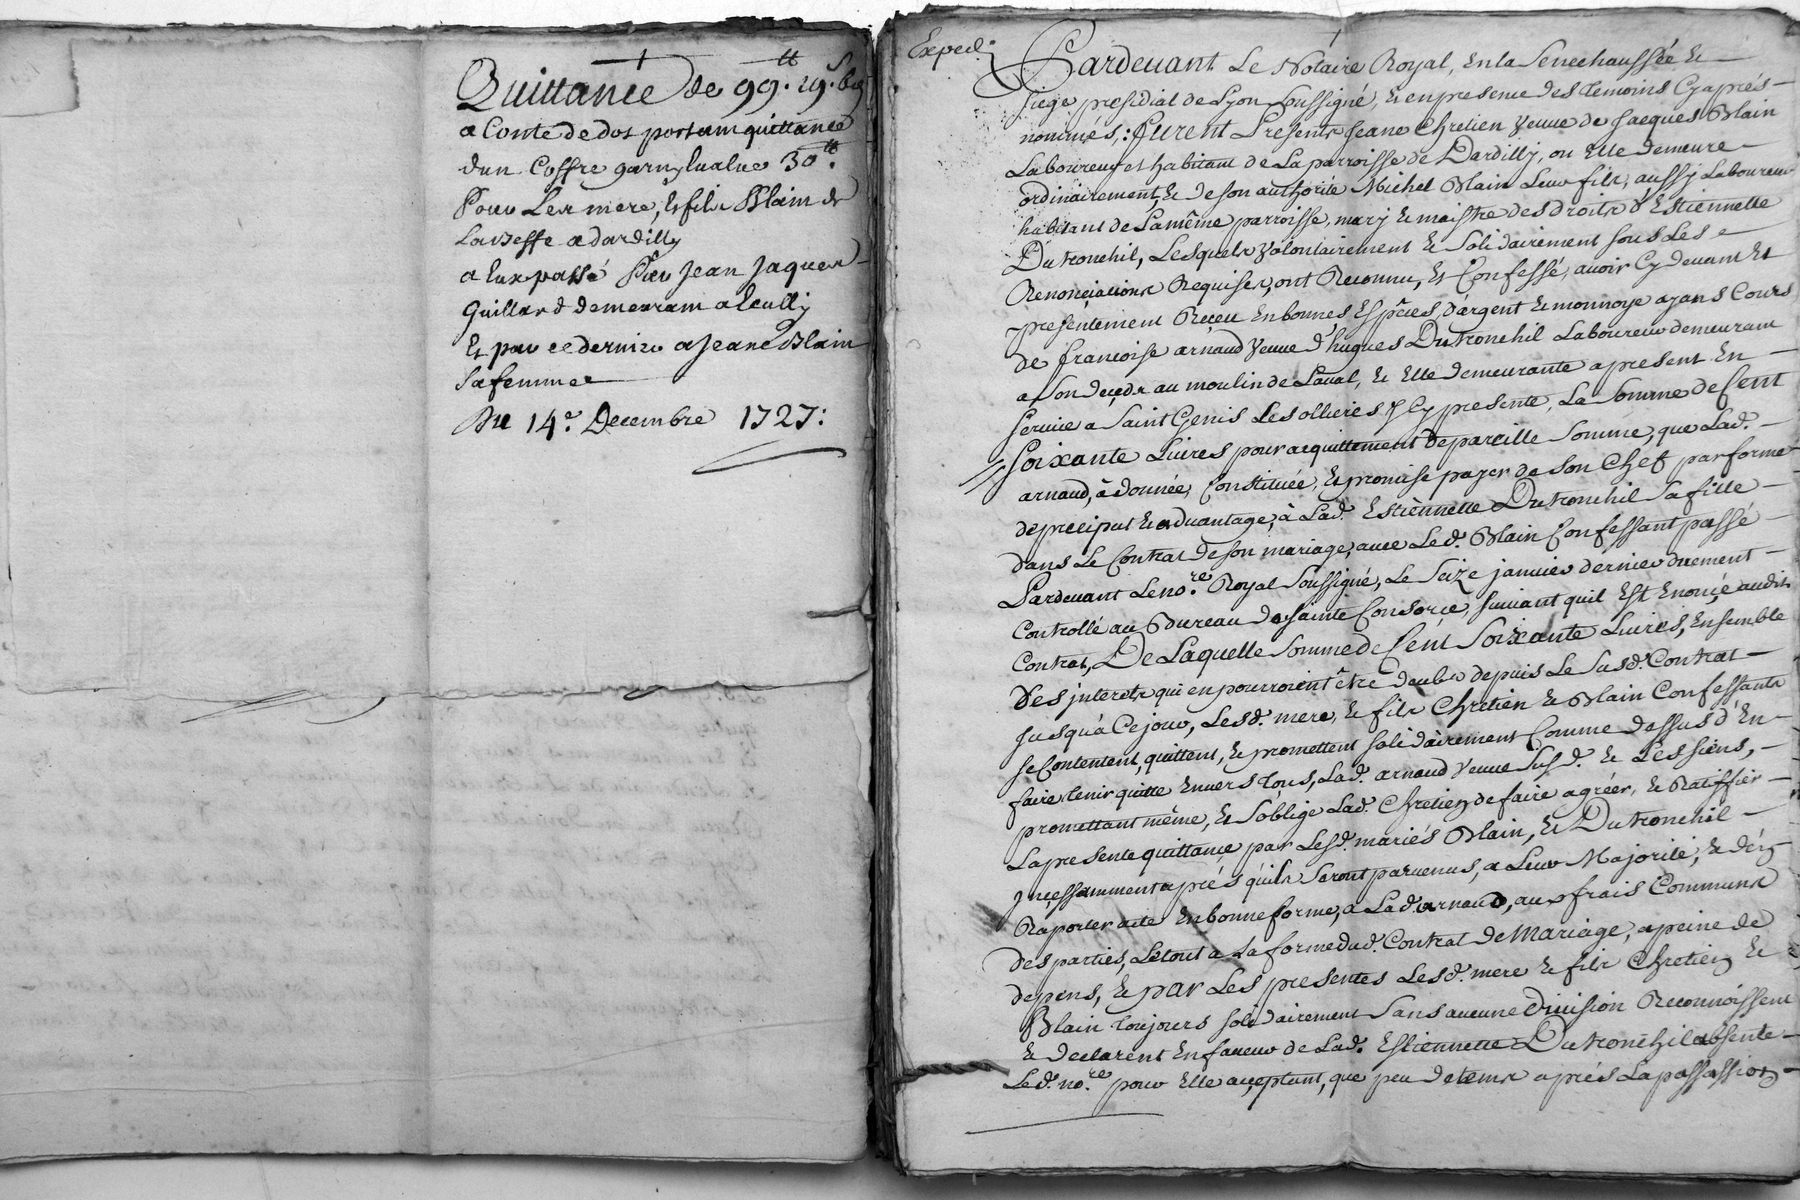 Quittance de 99.tt 19.s 6d
a Conte de dot portant quittance
dun Coffre garny Evalué 30.tt
Pour Les mere, & fils Blain de
La Beffe a dardilly
a Eux passé Par Jean Jaques
Guillard demeurant a Ecully
Et par ce dernier a Jeane Blain
Sa femme
Du 14.e Decembre 1727:
Exped.
Pardevant Le Notaire Royal, En la Senechaussée &
siege presidial de Lyon Soussigné, & en presence des temoins Cy aprés
nommés,: furent Presents Jeane Chretien veuve de Jacques Blain
Laboureur et habitant de La parroisse de Dardilly, ou Elle demeure
ordinairement, & de son authorité Michel Blain Leur fils, aussy Laboureur
habitant de La même parroisse, mary & maistre des droits d'Estiennette
Dutronchil, Lesquels volontairement & Solidairement sous Les
Renonciations Requises, ont Reconnu, & Confessé, avoir Cy devant Et
presentement Reçeu En bonnes Espêces d'argent & monnoye ayans Cours
de francoise arnaud veuve d'hugues Dutronchil Laboureur demeurant
a Son deçeds au moulin de Laval, & Elle demeurante a present En
Service a Saint Genis Les ollieres, Cy presente, La Somme de Cent
Soixante Livres pour acquittement de pareille Somme, que Lad.
arnaud, à donnée, Constituée, & promise payer de Son Chef par forme
de preciput & advantage, à Lad. Estiennette Dutronchil Sa fille
dans Le Contrat de son mariage, avec Led. Blain Confessant passé
Pardevant Le no.re Royal Soussigné, Le Seize janvier dernier duement
Controllé au Bureau de Sainte Consorce, suivant quil Est Enoncé audit
Contrat, De Laquelle Somme de Cent Soixante Livres, Ensemble
des interets qui en pourroient être deubs depuis Le Susd. Contrat
jusqu'à Ce jour, Lesd. mere, & fils Chretien & Blain Confessants
se Contentent, quittent, & promettent solidairement Comme dessus d'En
faire tenir quitte Envers tous, Lad. arnaud veuve Susd. & Les siens,
promettant même, & S'oblige Lad. Chretien de faire agréer, & Ratiffier
La presente quittance par Lesd. mariés Blain, & Dutronchil
Inçessamment aprés qu'ils Seront parvenus, a Leur Majorité, & d'en
Raporter acte En bonne forme, a Lad. arnaud, aux frais Communs
des parties, Le tout a La forme dud. Contrat de Mariage, a peine de
depens, & par Les presentes Lesd. mere & fils Chretien &
Blain toujours solidairement Sans aucune division Reconnoissent
& declarent En faveur de Lad. Estiennette Dutronchil absente
Led. no.re pour Elle aceptant, que peu de tems aprés La passassion